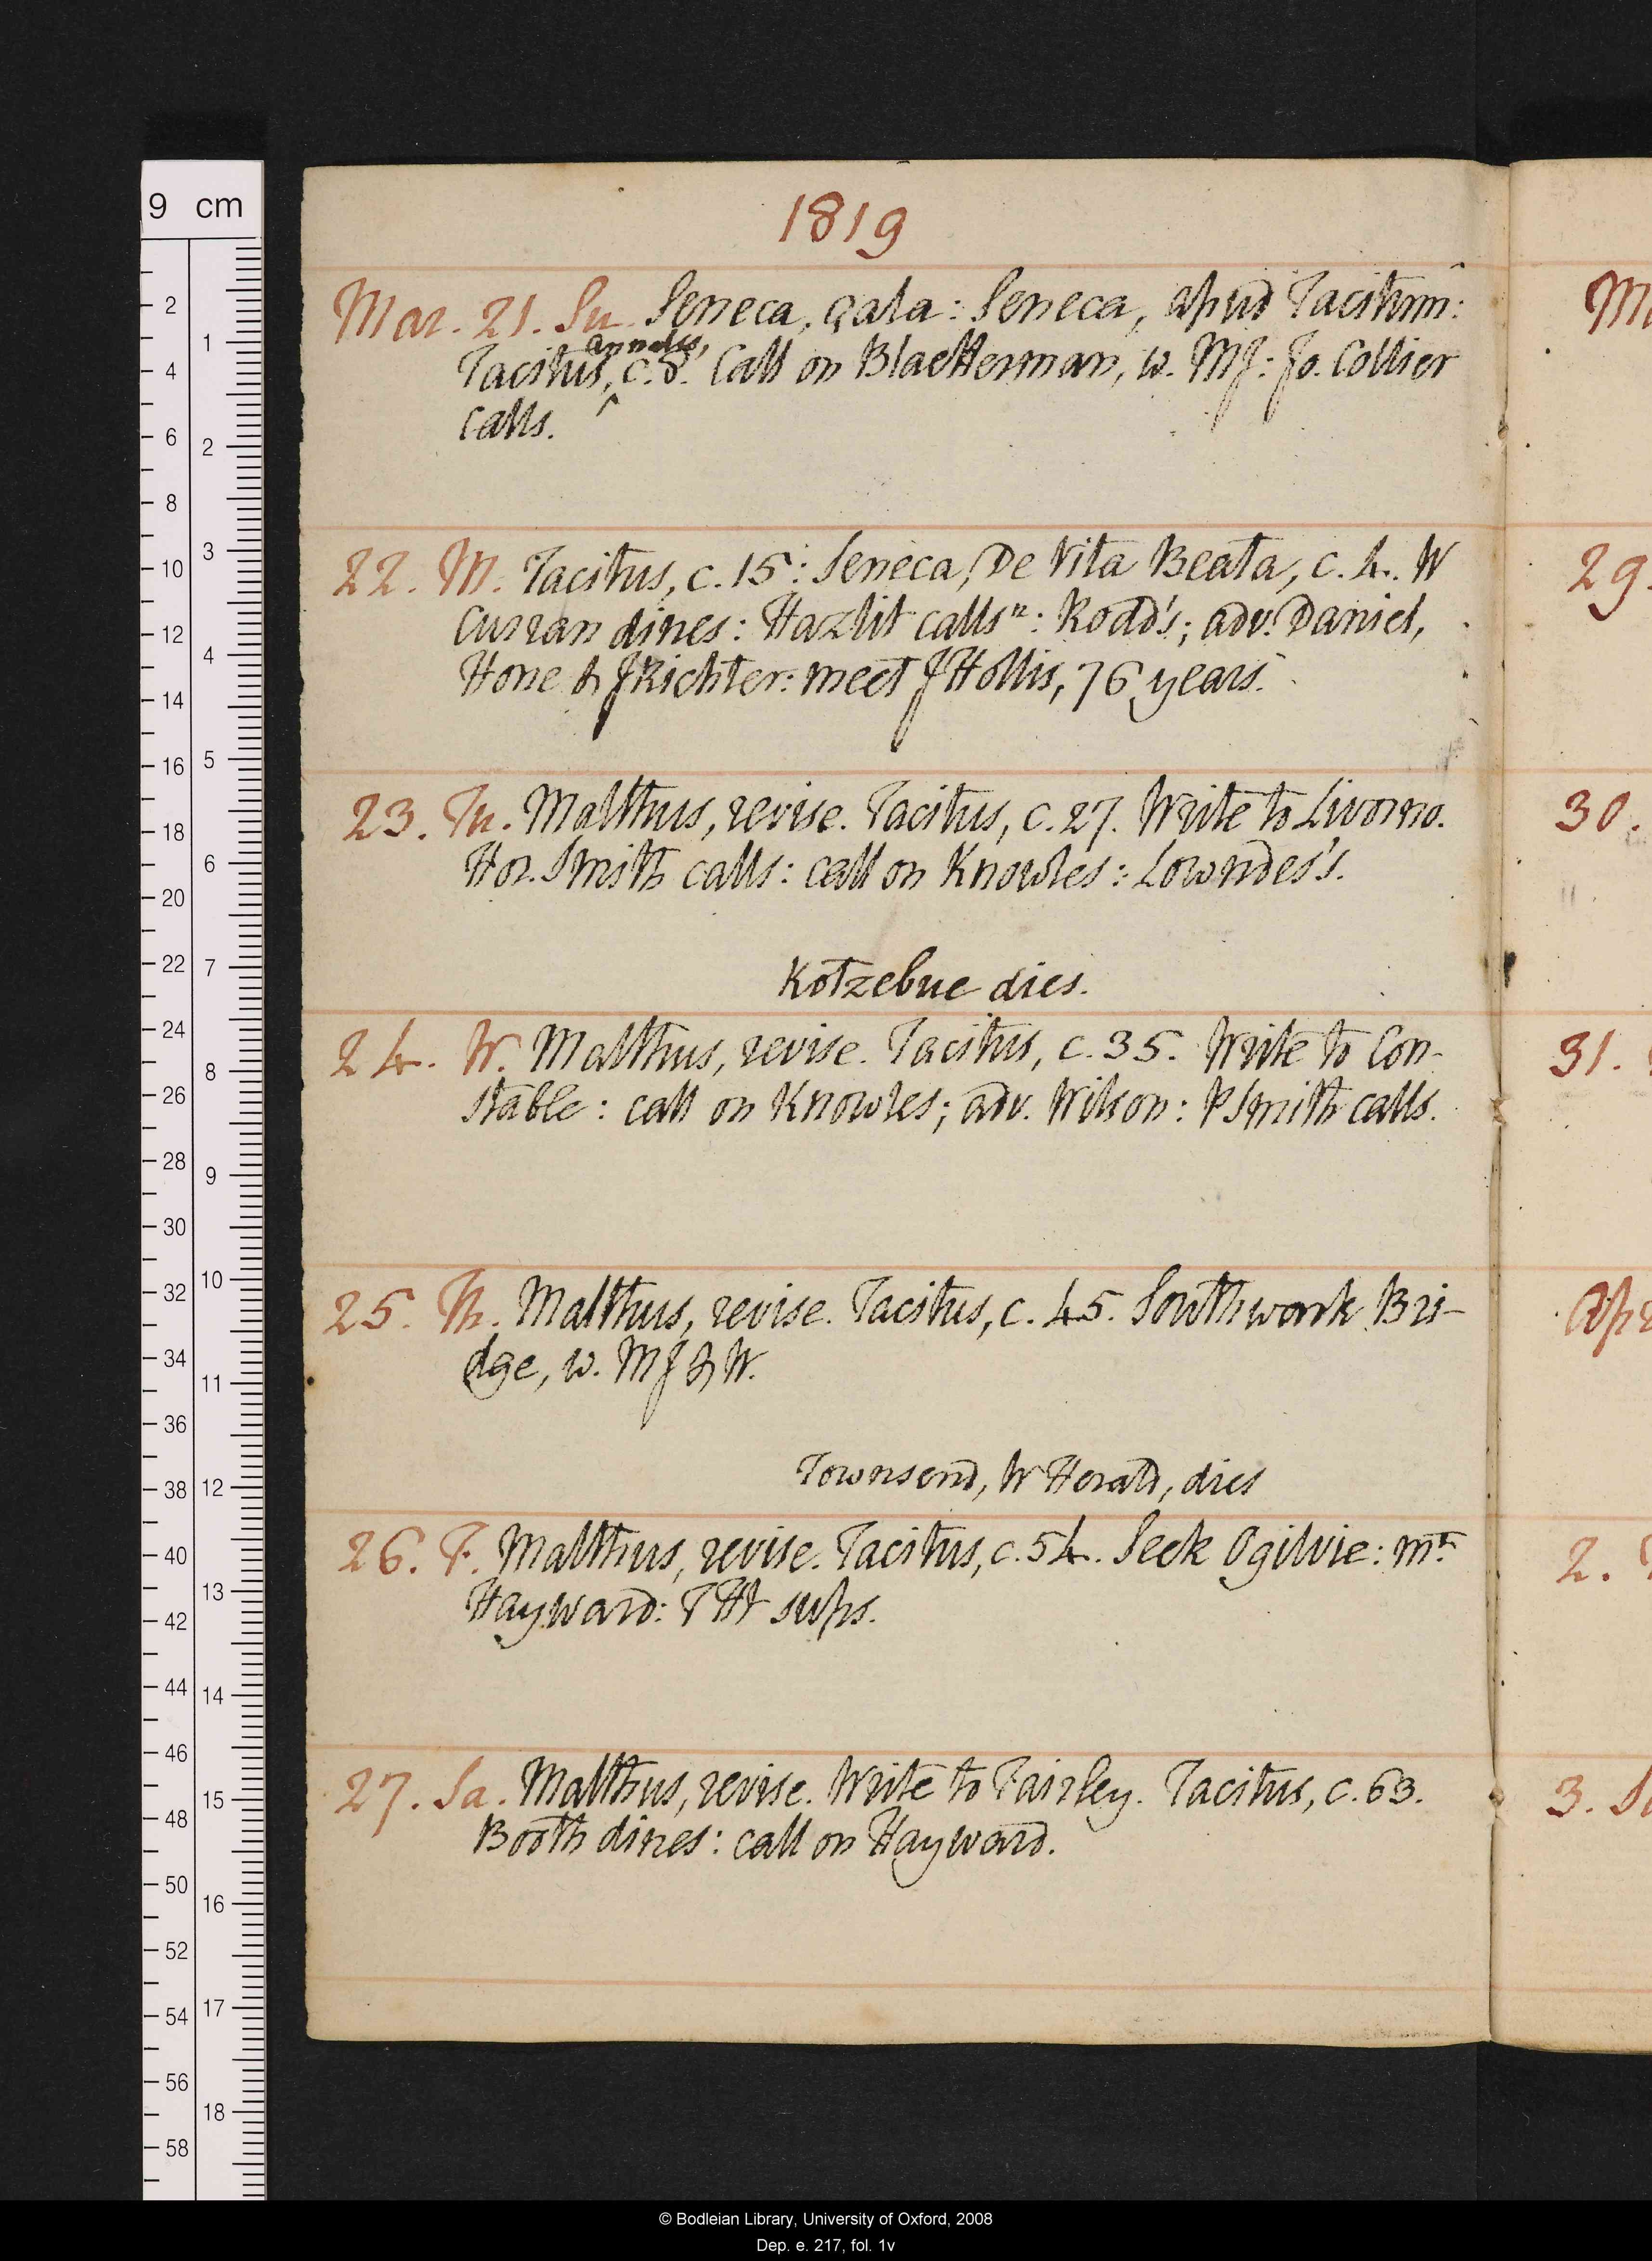 9 cm
1819
Mar. 21. Su. Seneca, çala: Seneca, apud Tacitum:
annales,
Tacitus, ^ c. 8. Call on Blackerman, w. MJ: Jo. Collier
calls.
22. M. Tacitus, c. 15: Seneca, De Vita Beata, c. 4. W
Curran dines: Hazlit calls n: Rodd's; adv. Daniel,
Hone & JRichter: meet JHollis, 76 years.
29.
23. Tu. Malthus, revise. Tacitus, c. 27. Write to Livorno.
Hor. Smith calls: call on Knowles: Lowndes's.
Kotzebue dies.
30.
24. W. Malthus, revise. Tacitus, c. 35. Write to Con-
stable: call on Knowles; adv. Wilson: PSmith calls.
31.
25. Th. Malthus, revise. Tacitus, c. 45. Southwark Bri-
dge, w. MJ & W.
Townsend, W Herald, dies
26. F. Malthus, revise. Tacitus, c. 54. Seek Ogilvie: Mrs
Hayward: T Ht sups.
2.
27. Sa. Malthus, revise. Write to Fairley. Tacitus, c. 63.
Booth dines: call on Hayward.
3.
© Bodleian Library, University of Oxford, 2008
Dep. e. 217, fol. 1v